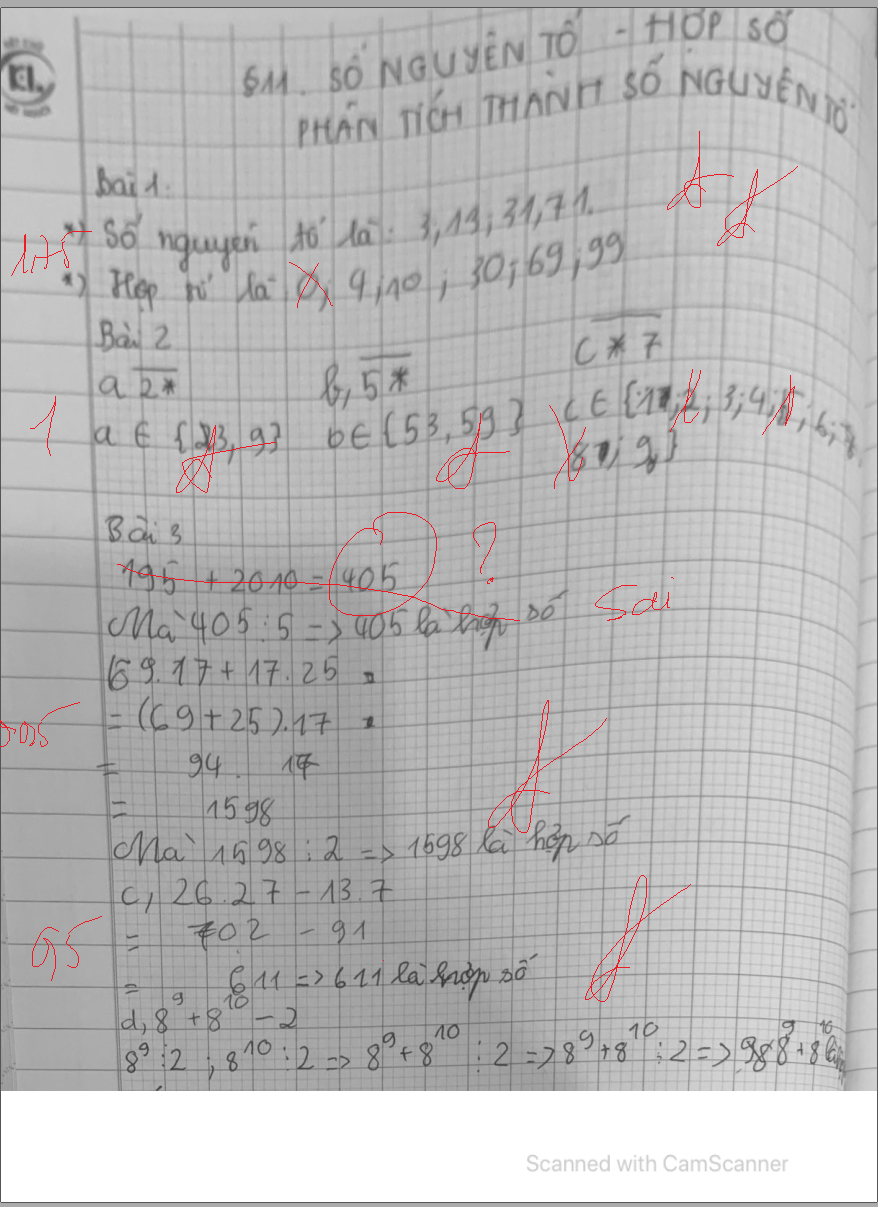 §11. SỐ NGUYÊN TỐ - HỢP SỐ
PHÂN TÍCH THÀNH SỐ NGUYÊN TỐ
Bài 1.
*) Số nguyên tố là: 3, 13; 31, 71.
1,75
*) Hợp số là 0, 4, 10; 30; 69; 99
Bài 2
a 2* b, 5* c * 7
1
a ∈ {23, 9} b ∈ {53, 59} c ∈ {1, 2; 3; 4; 5; 6; 7
8; 9}
Bài 3
195 + 2010 = 405 ?
Mà 405 : 5 => 405 là hợp số Sai
69.17 + 17.25
= (69 + 25).17
= 94. 17
= 1598
Mà 1598 : 2 => 1598 là hợp số
c, 26.27 - 13.7
= 702 - 91
0,5
= 611 => 611 là hợp số
d, 8⁹ + 8¹⁰ - 2
8⁹ : 2 ; 8¹⁰ : 2 => 8⁹ + 8¹⁰ : 2 => 8⁹ + 8¹⁰ : 2 => 8⁹ + 8¹⁰
Scanned with CamScanner